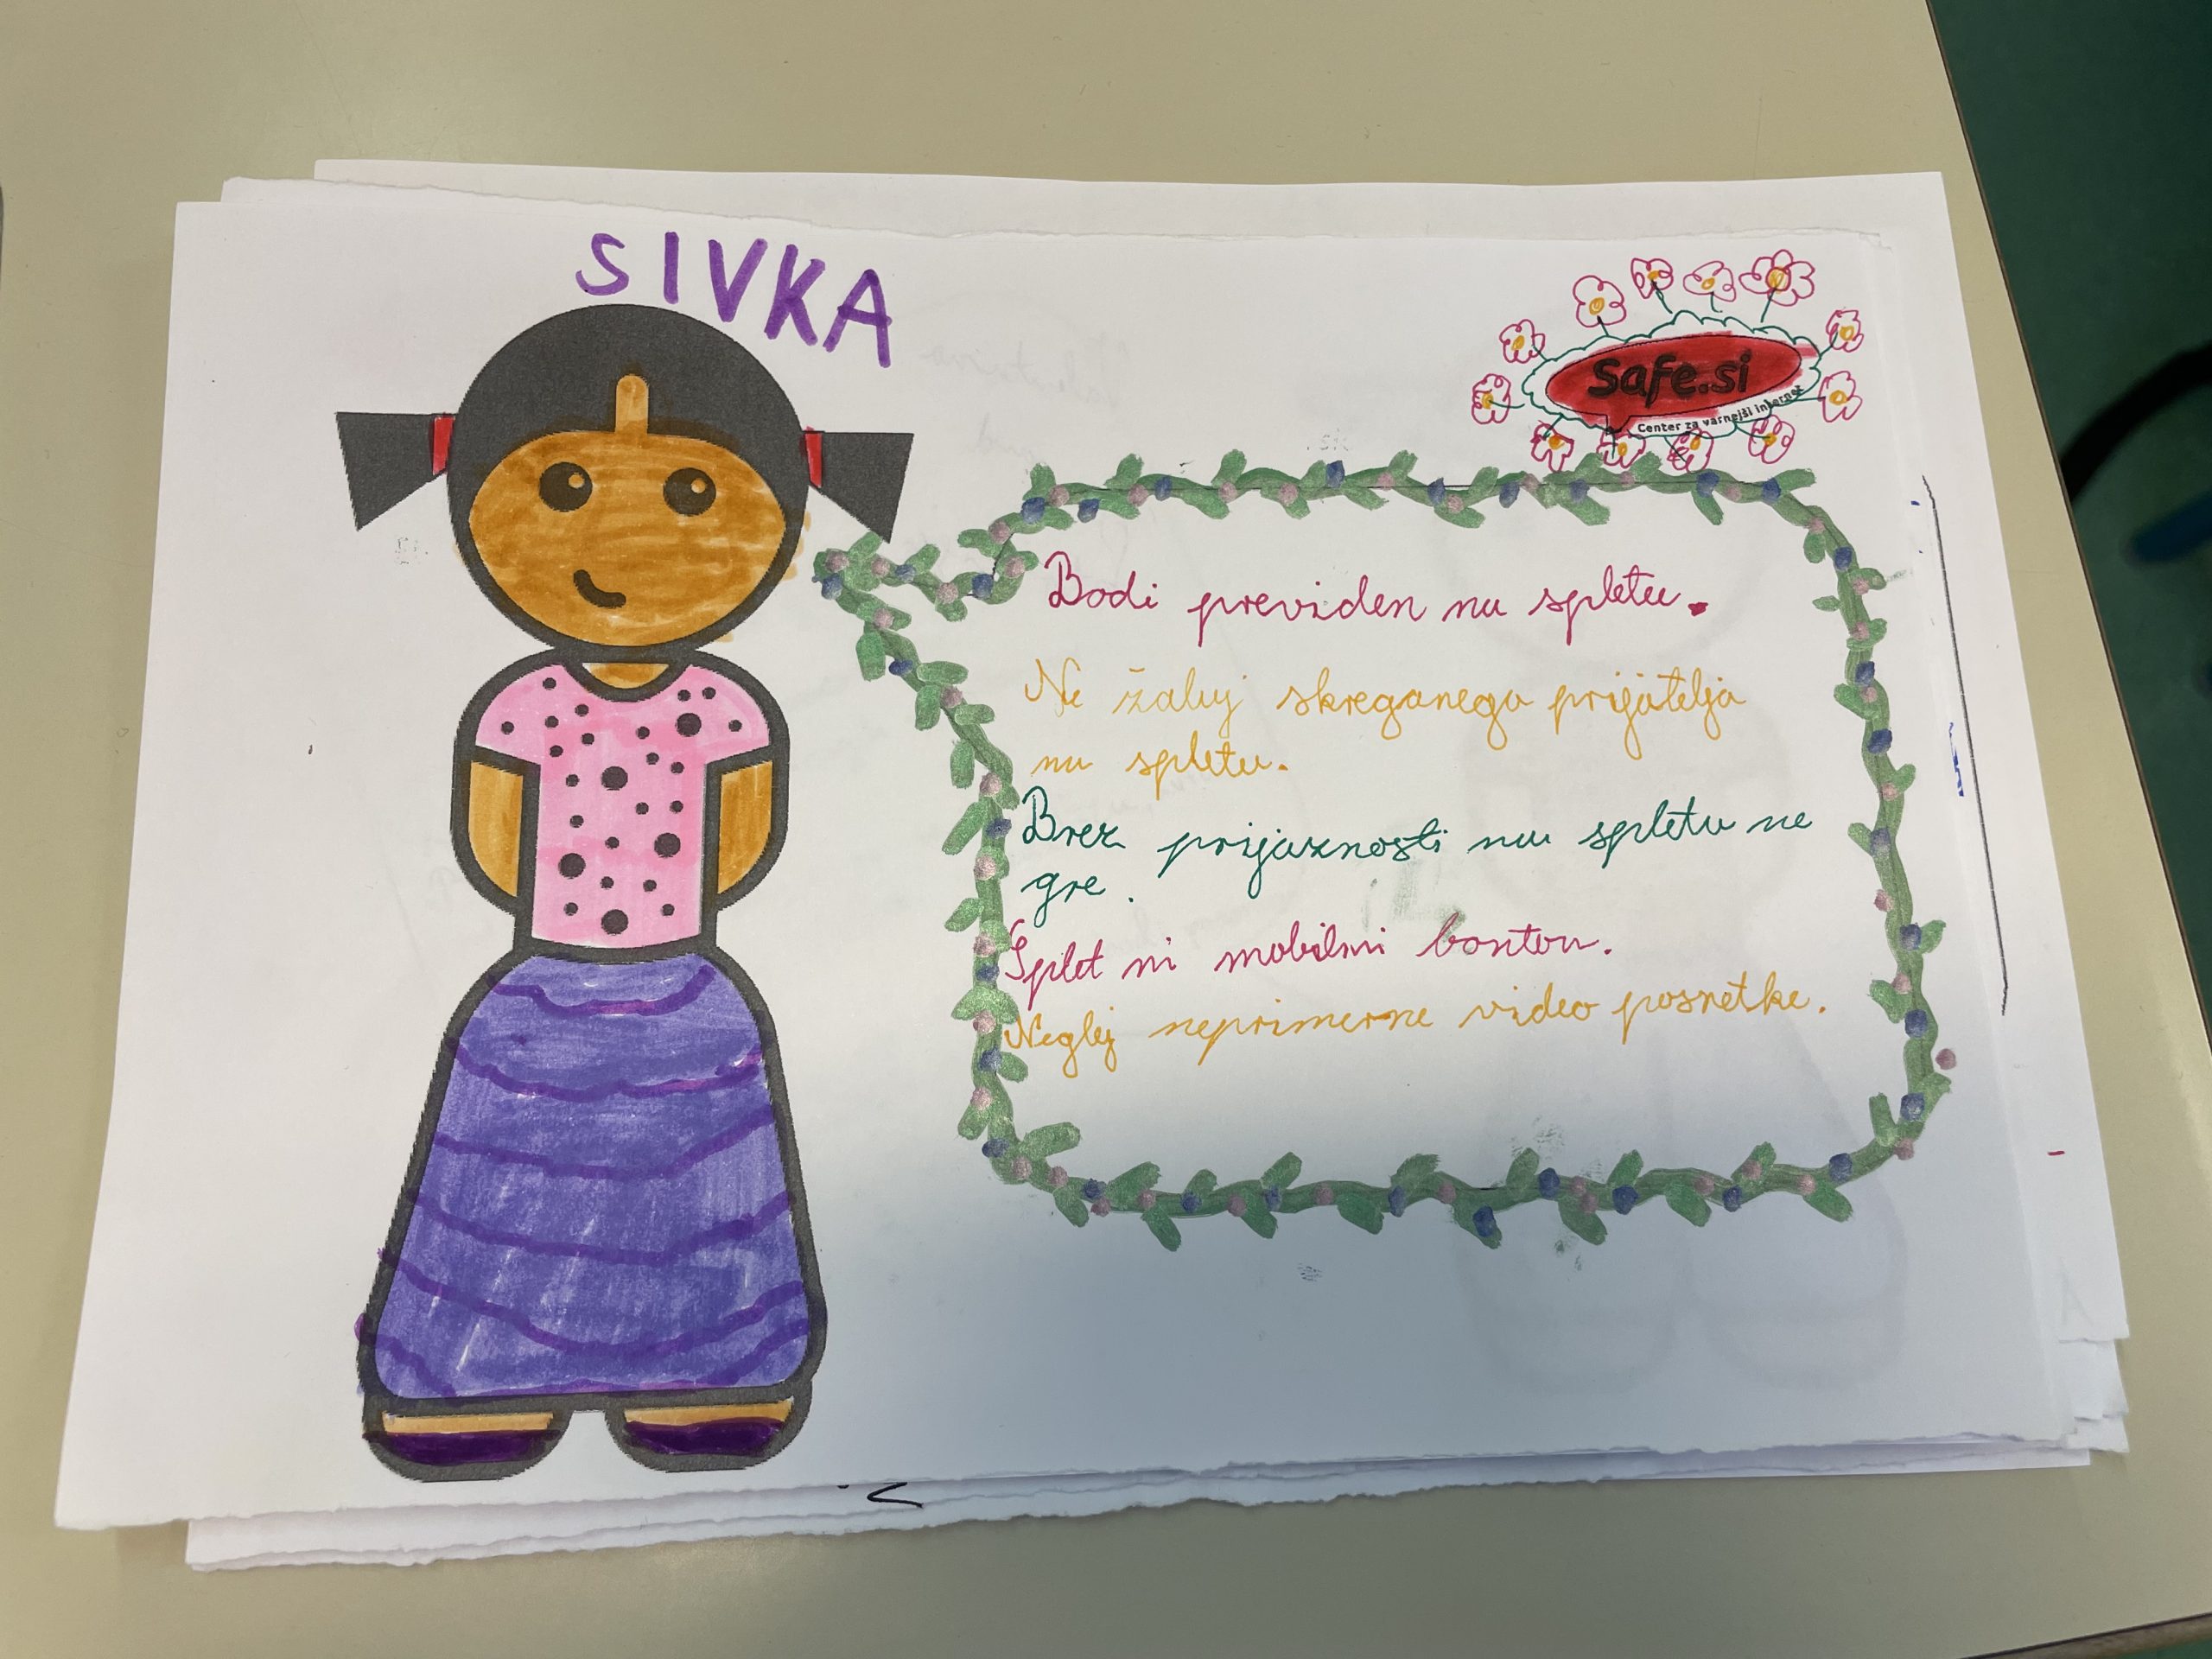 SIVKA
Safe.si
Center za varnejši internet
Bodi previden na spletu.
Ne žaluj skreganega prijatelja
na spletu.
Brez prijaznosti na spletu ne
gre.
Splet ni mobilni bonton.
Neglej neprimerne video posnetke.